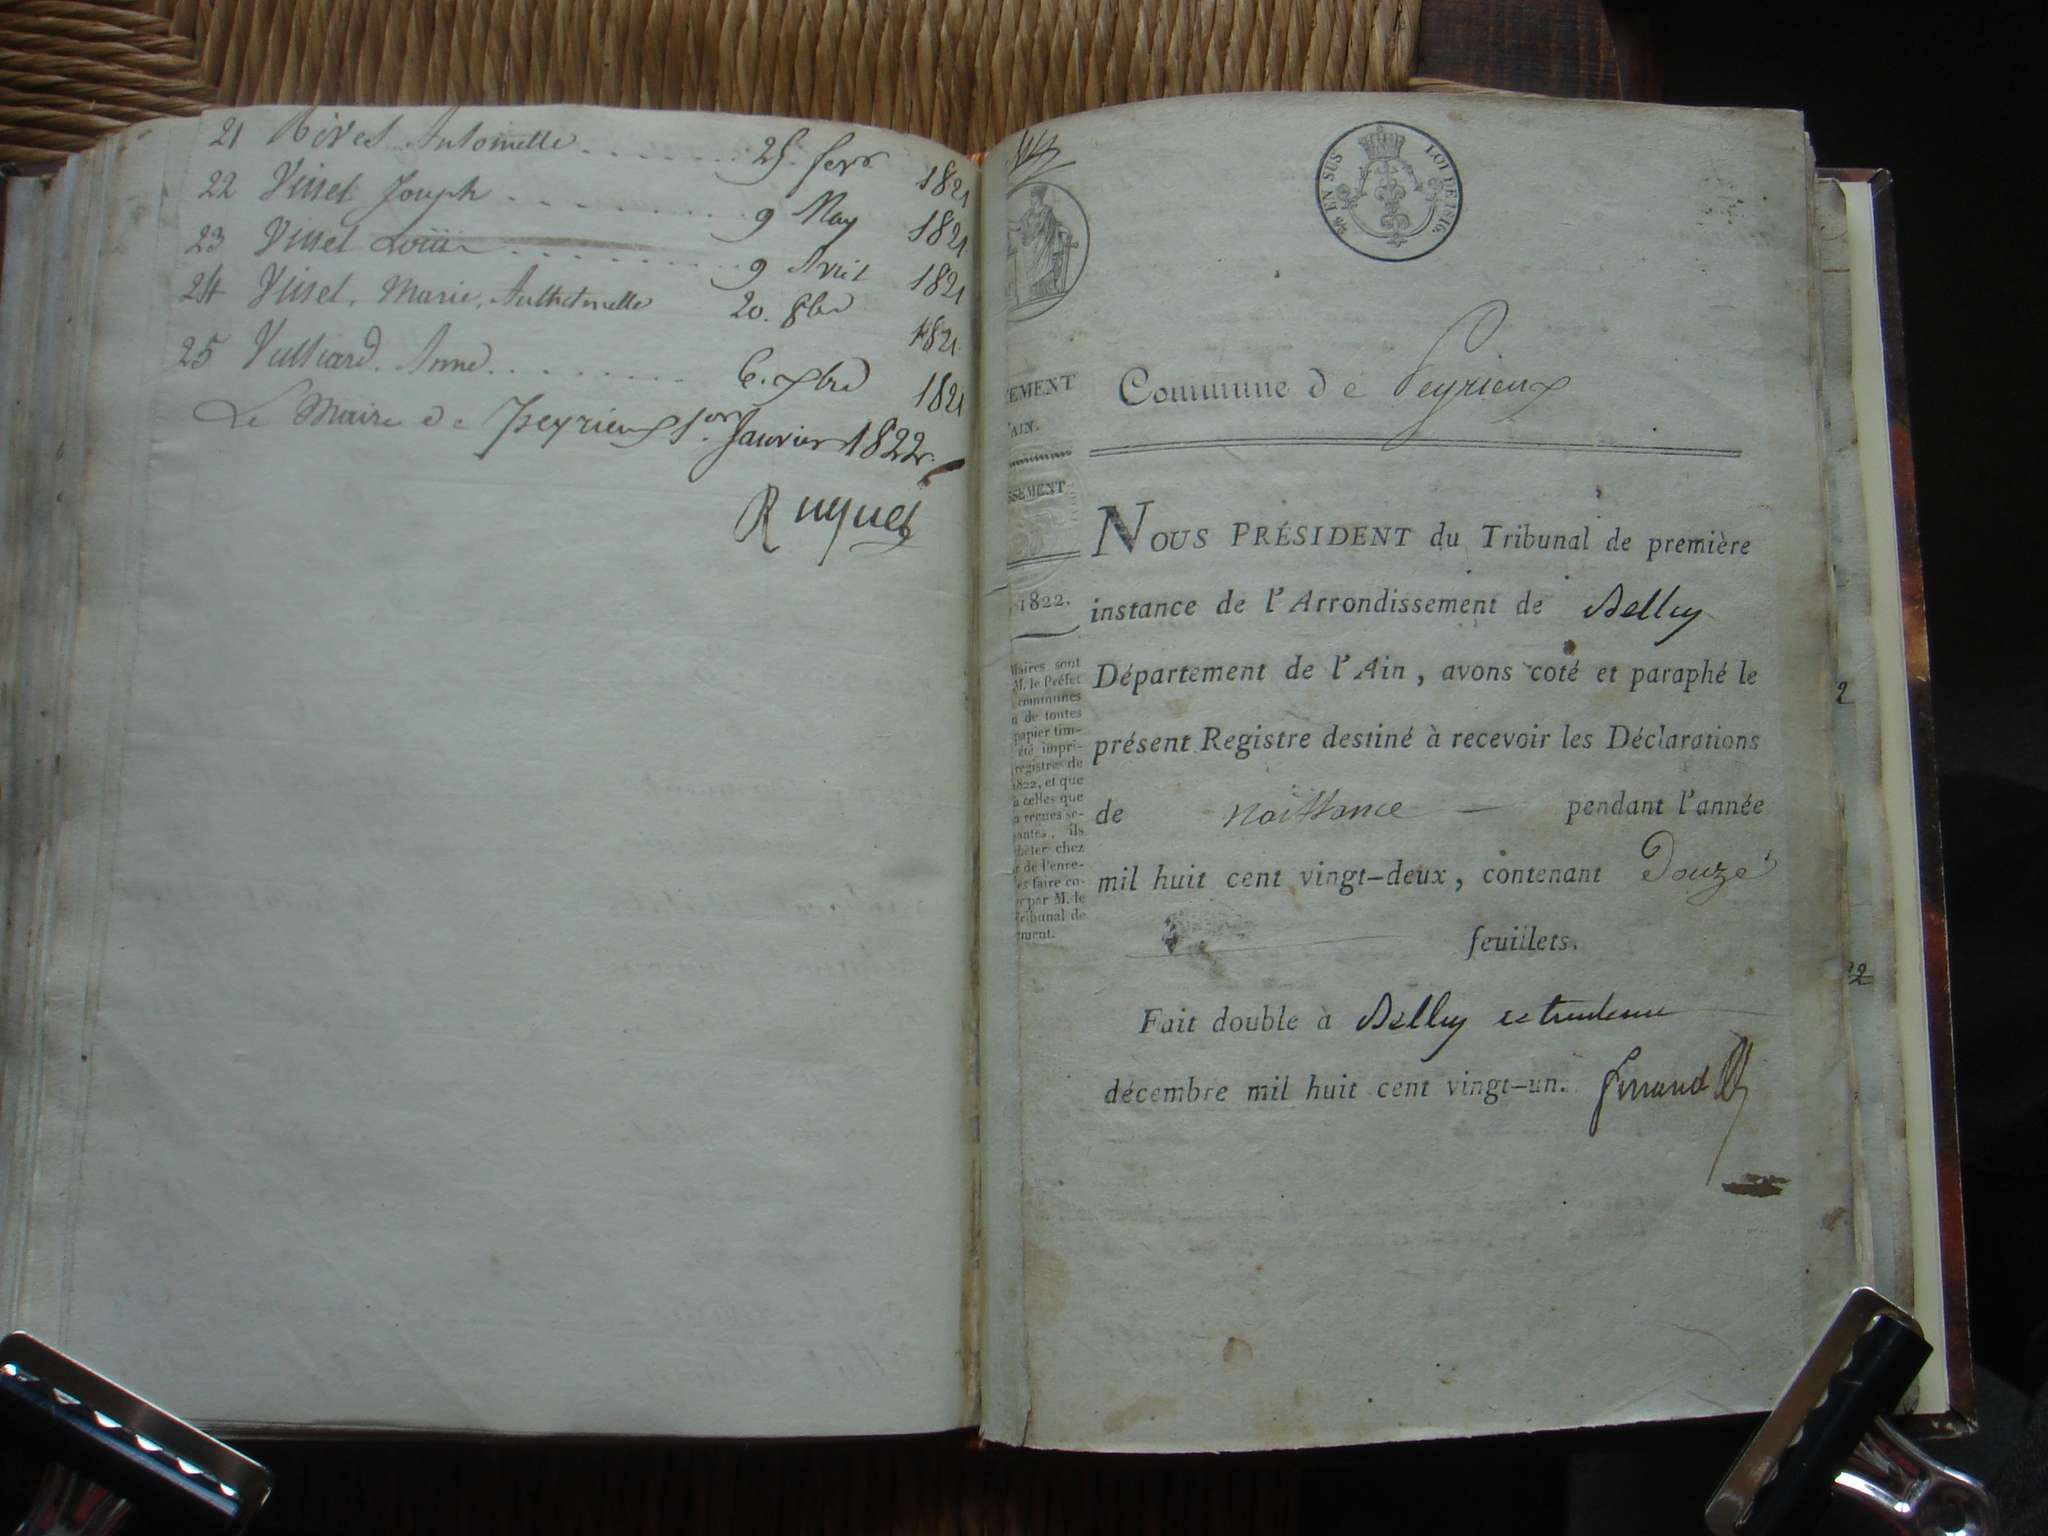 21 Rivet Antoinette 25 fevr 1821
22 Vinet Joseph 9 May 1821
23 Vinet Louise 9 Avril 1821
24 Vinet, Marie, Anthelmette 20. 8bre 1821
25 Vulliard. Anne 6. xbre 1821
Le Maire de Peyrieux 1er Janvier 1822.
Ruquet
96 EN SUS LOI DE 1816.
EMENT
AIN.
SSEMENT
1822.
Maires sont
M. le Préfet
communes
n de toutes
papier tim-
été impri-
registres de
1822, et que
à celles que
reçues
ils
cheter chez
r de l'enre-
es faire co-
par M. le
Tribunal de
ment.
Commune de Peyrieux
NOUS PRÉSIDENT du Tribunal de première
instance de l'Arrondissement de Belley
Département de l'Ain, avons coté et paraphé le
présent Registre destiné à recevoir les Déclarations
de naissance pendant l'année
mil huit cent vingt-deux, contenant Douze
feuillets.
Fait double à Belley le trente un
décembre mil huit cent vingt-un.
2
22